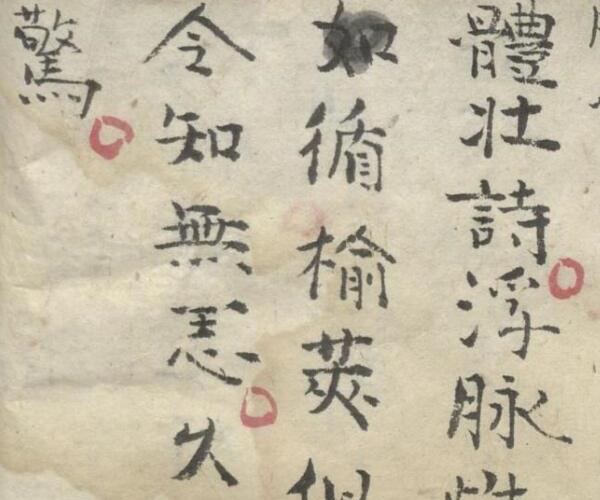 體壯詩浮脉
如循榆莢似
令知無恙久
驚